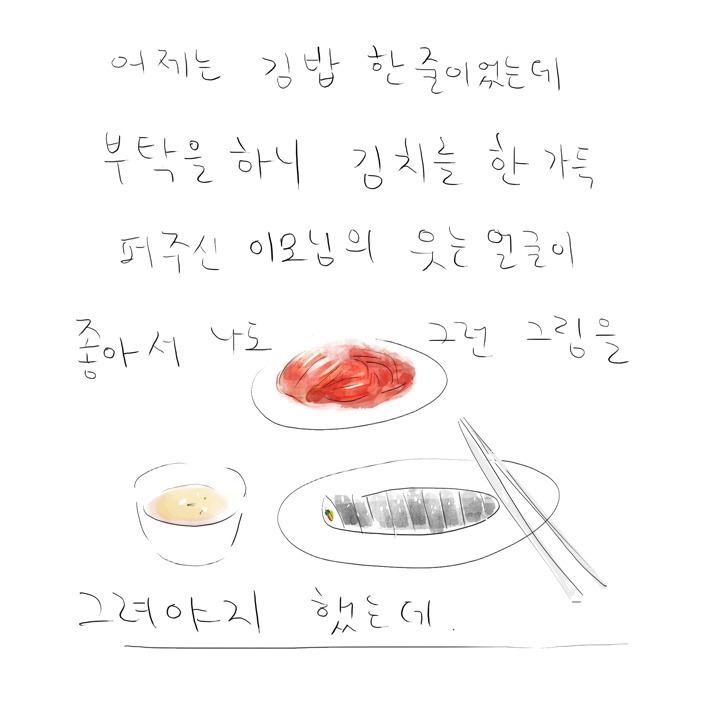 어제는 김밥 한 줄이었는데
부탁을 하니 김치를 한 가득
퍼주신 이모님의 웃는 얼굴이
좋아서 나도 그런 그림을
그려야지 했는데.